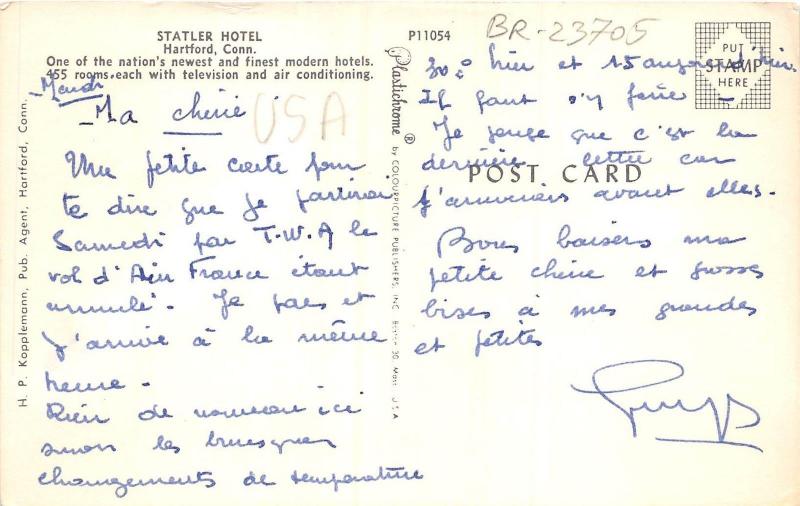 STATLER HOTEL
Hartford, Conn.
One of the nation's newest and finest modern hotels.
455 rooms, each with television and air conditioning.
P11054
BR-23705
PUT
STAMP
HERE
USA
Mardi
Ma chérie
Une petite carte pour
te dire que je partirai
Samedi par T.W.A le
vol d'Air France étant
annulé. Je pars et
j'arrive à la même
heure.
Rien de nouveau ici
sinon les brusques
changements de température
30° hier et 15 aujourd'hui.
Il faut s'y faire
Je pense que c'est la
dernière lettre car
j'arriverais avant elles.
POST CARD
Bons baisers ma
petite chérie et grosses
bises à mes grandes
et petites
H. P. Kopplemann, Pub. Agent, Hartford, Conn.
Plastichrome ® by COLOURPICTURE PUBLISHERS, INC. Boston 30, Mass. U.S.A.